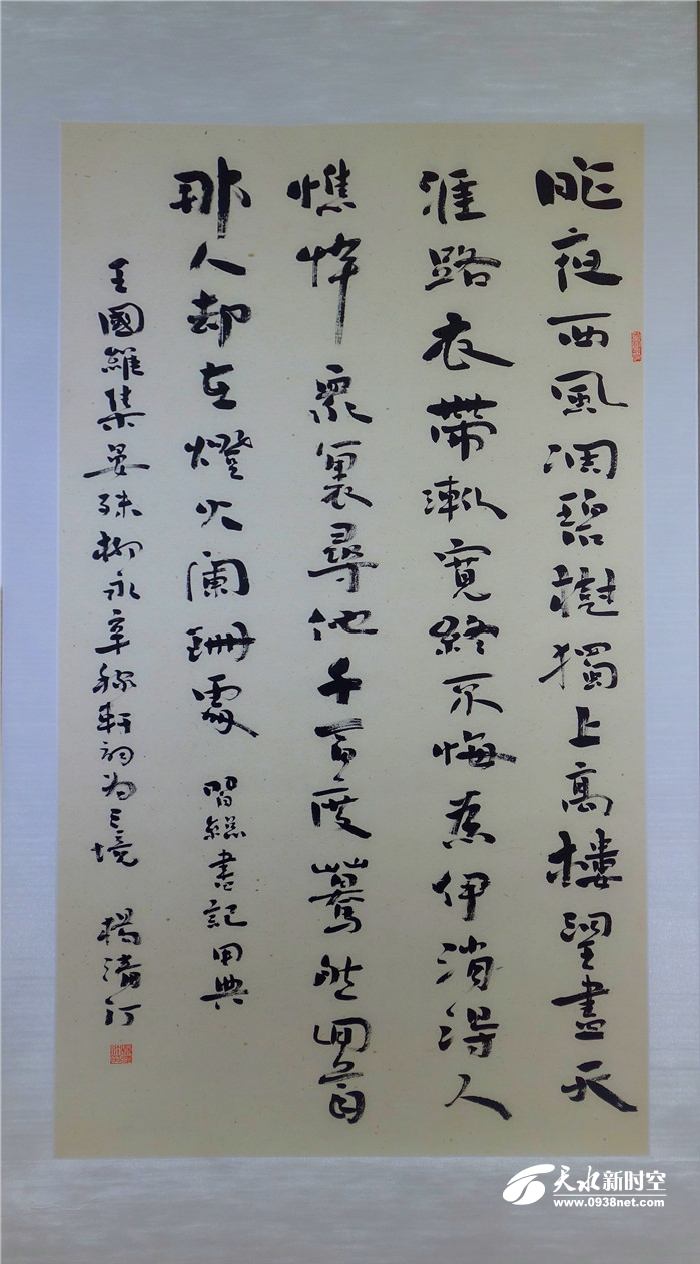 昨夜西風凋碧樹獨上高樓望盡天
涯路衣帶漸寬終不悔為伊消得人
憔悴眾裏尋他千百度驀然回首
那人却在燈火闌珊處
習總書記用典
王國維集晏殊柳永辛稼軒詞为三境
楊清汀
天水新时空
www.0938net.com